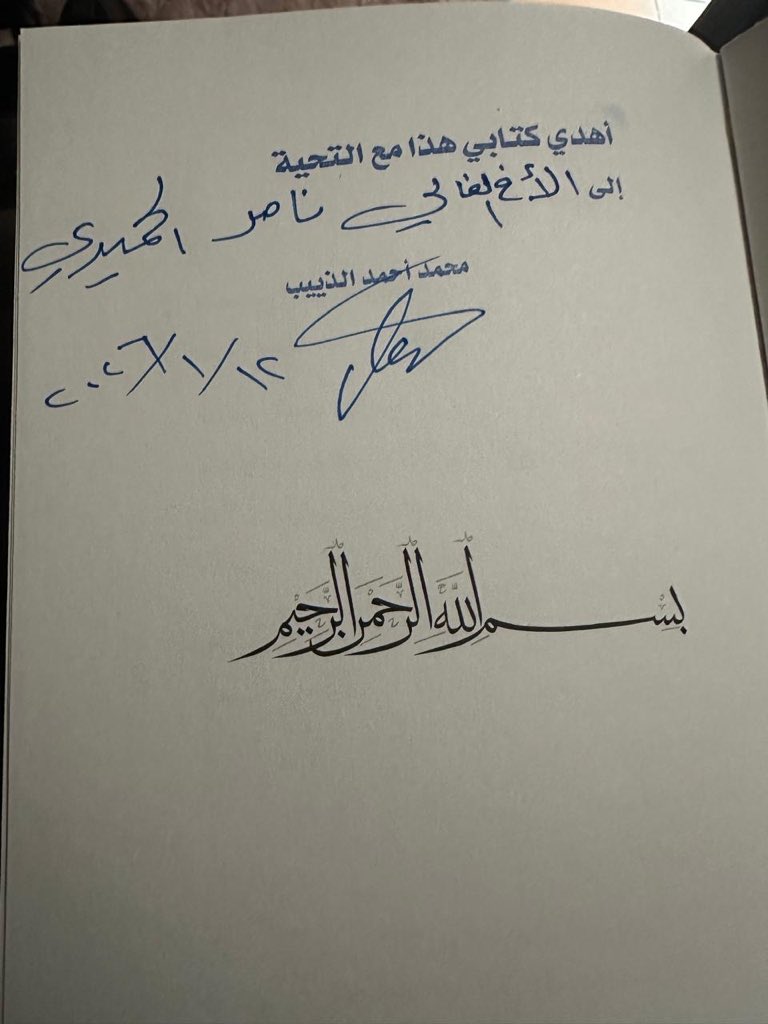 أهدي كتابي هذا مع التحية
إلى الأخ الغالي ناصر الحميدي
محمد أحمد الذييب
٢٠٢٦/١/١٢
بسم الله الرحمن الرحيم